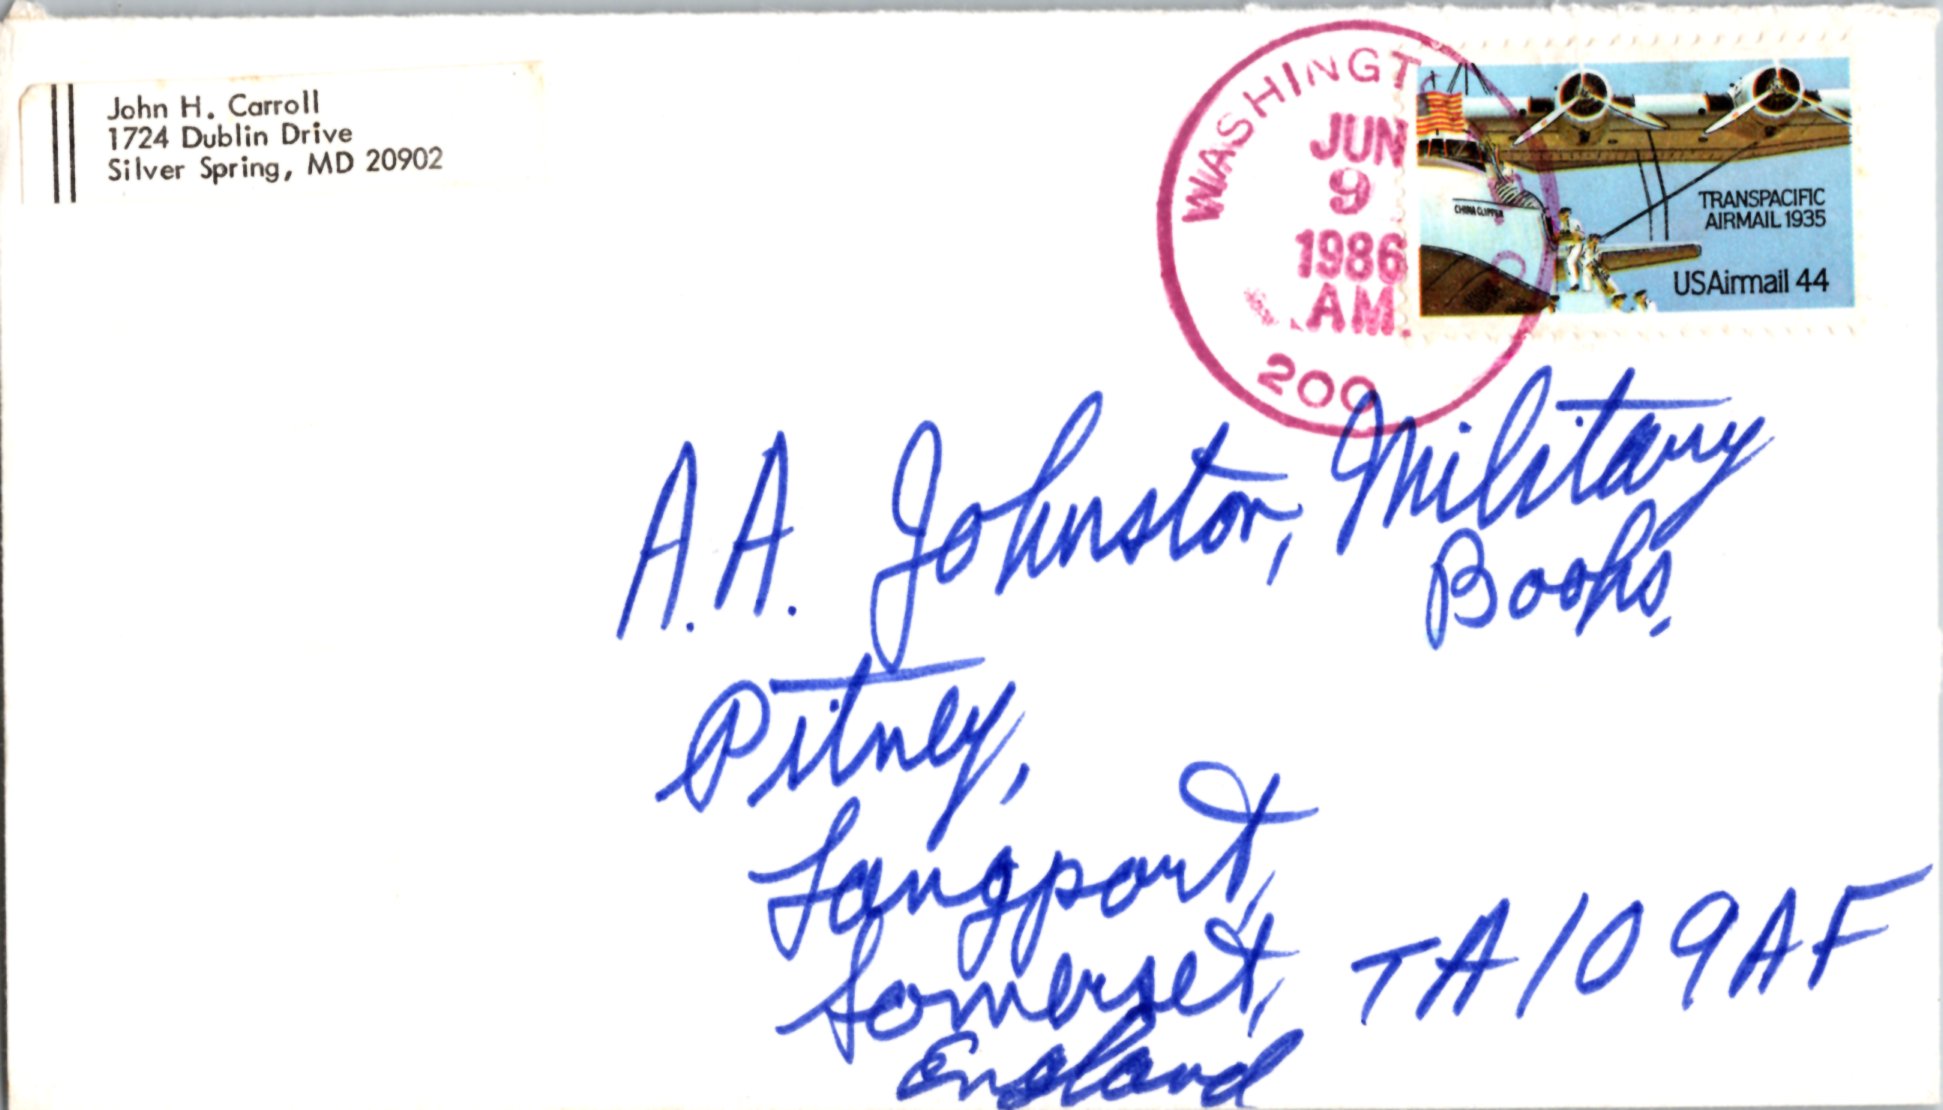 John H. Carroll
1724 Dublin Drive
Silver Spring, MD 20902
WASHINGT
JUN
9
1986
AM
200
CHINA CLIPPER
TRANSPACIFIC
AIRMAIL 1935
USAirmail 44
A.A. Johnston, Military
Books,
Pitney,
Langport,
Somerset, TA10 9AF
England